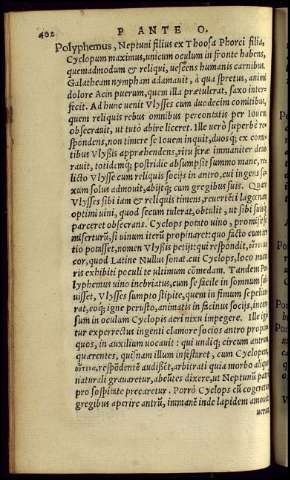 402 P ANTE O.
Polyphemus, Neptuni filius ex Thoosa Phorci filia,
Cyclopum maximus, unicum oculum in fronte habens,
quemadmodum & reliqui, uescens humanis carnibus.
Galatheam nympham adamauit, à qua spretus, animi
dolore Acin puerum, quem illa prætulerat, saxo inter-
fecit. Ad hunc uenit Vlysses cum duodecim comitibus,
quem reliquis rebus omnibus percontatis per Iouem
obsecrauit, ut tutò abire liceret. Ille uerò superbè re-
spondens, non timere se Iouem inquit, duosq; ex comi-
tibus Vlyssis apprehendens, immaniter deuo-
rauit, totidemq; postridie absumpsit summo mane, re-
licto Vlysse cum reliquis socijs in antro, cui ingens sa-
xum solus admouit, abijtq; cum gregibus suis. Quare
Vlysses sibi iam & reliquis timens, reuertēti lagenam
optimi uini, quod secum tulerat, obtulit, ut sibi suisq;
parceret obsecrans. Cyclops potato uino, promisit se
miserturū, si uinum iterū propinaret: quo facto cum
potuisset, nomen Vlyssis petijt: qui respondit,
cor, quod Latine Nullus sonat. cui Cyclops, loco mune
ris exhibiti poculi te ultimum comedam. Tandem Po
lyphemus uino inebriatus, cum se facile in somnum
uisset, Vlysses sumpto stipite, quem in fimum se
rat, eoq; igne perusto, animatis in facinus socijs,
sum in oculum Cyclopis aeri nixu impegere. Ille igi-
tur experrectus ingenti clamore socios antro pro
quos, in auxilium uocauit: qui undiq; circum antrum
quærentes, quisnam illum infestaret, cum Cyclopem,
respondētē audissēt, arbitrati quia morbo aliquo
naturali grauaretur, abeūtes dixere, ut Neptunū patrem
pro sospitate precaretur. Porrò Cyclops cū cogeretur
gregibus aperire antrū, immanē inde lapidem amouit